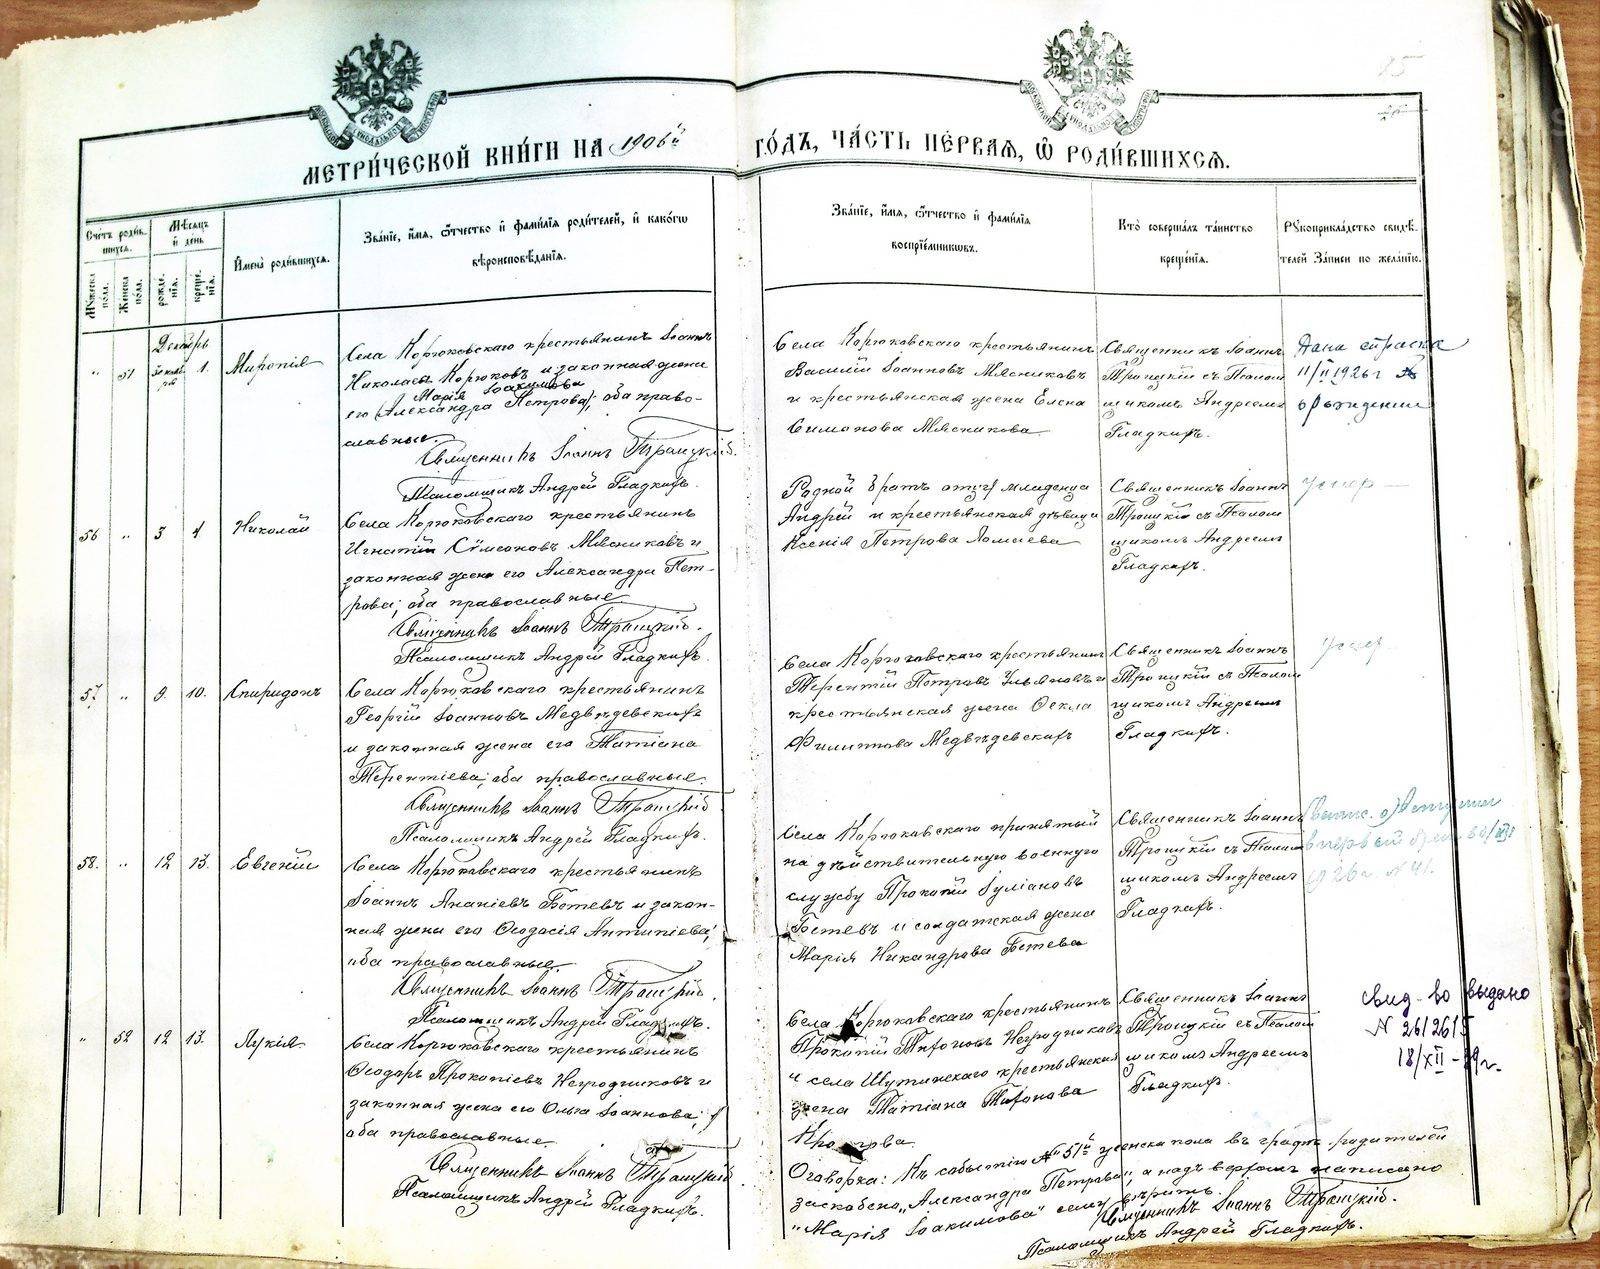 15
МЕТРИ́ЧЕСКОЙ КНИ́ГИ НА 1906й ГО́ДЪ, ЧА́СТЬ ПЕ́РВАЯ, Ѿ РОДИ́ВШИХСЯ.
Сче́тъ роди́в-
шихся.
Му́жеска по́ла.
Же́нска по́ла.
Мѣ́сяцъ
и́ день
рожде́-
нія.
креще́-
нія.
И́мена роди́вшихся.
Зва́ніе, и́мя, ѻ́тчество и́ фами́лія роди́телей, и́ како́гѡ
вѣроисповѣ́данія.
Зва́ніе, и́мя, ѻ́тчество и́ фами́лія
воспріе́мниковъ.
Кто̀ соверша́лъ та́инство
креще́нія.
Рꙋкоприкла́дство свидѣ́-
телей За́писи по жела́нію.
Декабрь
" 51 30 нояб- ря 1. Миропія
Села Корюковскаго крестьянинъ Іоаннъ
Николаевъ Корюковъ и законная жена
Марія Іоакимова
его (Александра Петрова); оба право-
славные.
Священникъ Іоаннъ Троицкій.
Псаломщикъ Андрей Гладкихъ.
Села Корюковскаго крестьянинъ
Василій Іоанновъ Мясниковъ
и крестьянская жена Елена
Симонова Мясникова.
Священникъ Іоаннъ
Троицкій съ Псалом
щикомъ Андреемъ
Гладкихъ.
Дана справка
11/II 1926 г
о рождении
56 " 3 4 Николай
Села Корюковскаго крестьянинъ
Игнатій Сѵмеоновъ Мясниковъ и
законная жена его Александра Пет-
рова; оба православные
Священникъ Іоаннъ Троицкій.
Псаломщикъ Андрей Гладкихъ.
Родной братъ отца младенца
Андрей и крестьянская дѣвица
Ксенія Петрова Ломаева
Священникъ Іоаннъ
Троицкій съ Псалом
щикомъ Андреемъ
Гладкихъ.
Умер
57. " 9. 10. Спиридонъ
Села Корюковскаго крестьянинъ
Георгій Іоанновъ Медвѣдевскихъ
и законная жена его Татіана
Терентіева; оба православные.
Священникъ Іоаннъ Троицкій
Псаломщикъ Андрей Гладкихъ.
Села Корюковскаго крестьянинъ
Терентій Петровъ Ульяновъ и
крестьянская жена Ѳекла
Филиппова Медвѣдевскихъ
Священникъ Іоаннъ
Троицкій съ Псалом
щикомъ Андреемъ
Гладкихъ.
Умер
58. " 12 13. Евгеній
Села Корюковскаго крестьянинъ
Іоаннъ Ананіевъ Бетевъ и закон-
ная жена его Ѳеодосія Антипіева;
оба православные.
Священникъ Іоаннъ Троицкій.
Псаломщикъ Андрей Гладкихъ.
Села Корюковскаго принятый
на дѣйствительную военную
службу Прокопій Іуліановъ
Бетевъ и солдатская жена
Марія Никандрова Бетева
Священникъ Іоаннъ
Троицкій съ Псалом
щикомъ Андреемъ
Гладкихъ.
1926 г. N 41.
" 52 12 13. Лукія
Села Корюковскаго крестьянинъ
Ѳеодоръ Прокопіевъ Негодниковъ и
законная жена его Ольга Іоаннова;
оба православные.
Священникъ Іоаннъ Троицкій
Псаломщикъ Андрей Гладкихъ.
Села Корюковскаго крестьянинъ
Прокопій Тихоновъ Негодниковъ
и села Шутинскаго крестьянская
жена Татіана Тихонова
Священникъ Іоаннъ
Троицкій съ Псалом
щикомъ Андреемъ
Гладкихъ.
Свид-во выдано
N 261261
18/XII-39г.
Оговорка: Къ событію № 51й женска пола въ графѣ родителей
заскоблено „Александра Петрова", а надъ верхомъ написано
"Марія Іоакимова" сему вѣрить.
Священникъ Іоаннъ Троицкій.
Псаломщикъ Андрей Гладкихъ.